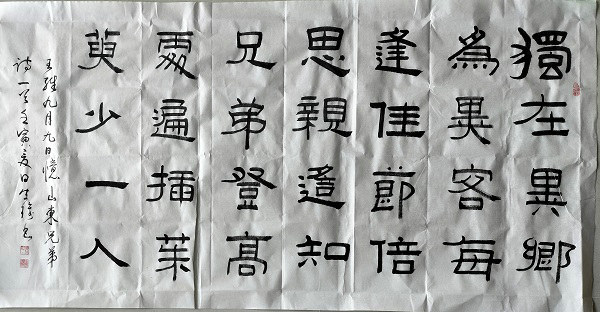 獨在異鄉
為異客每
逢佳節倍
思親遙知
兄弟登高
處遍插茱
萸少一人
王維九月九日憶山東兄弟
詩一首壬寅夏日